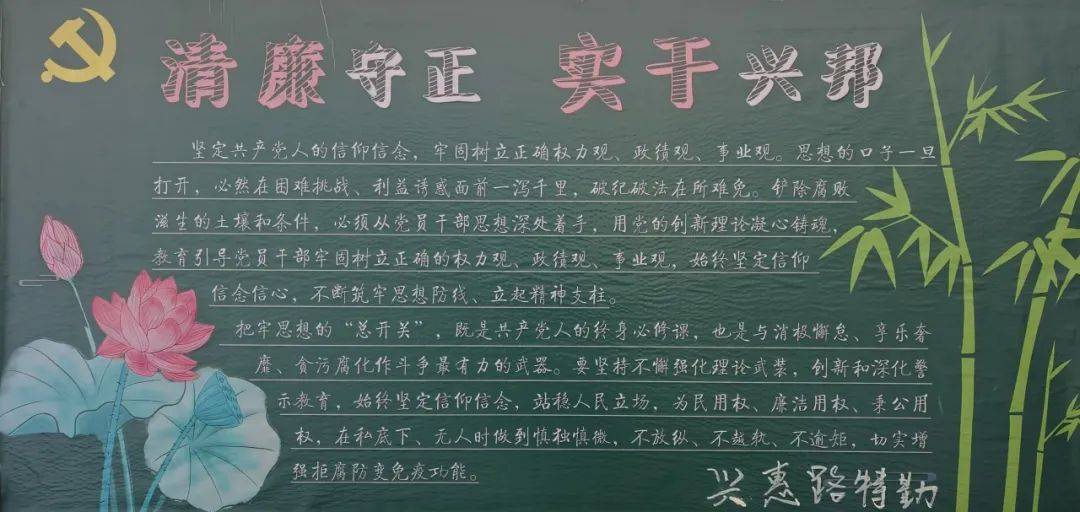 清廉守正 实干兴邦
坚定共产党人的信仰信念，牢固树立正确权力观、政绩观、事业观。思想的口子一旦
打开，必然在困难挑战、利益诱惑面前一泻千里，破纪破法在所难免。铲除腐败
滋生的土壤和条件，必须从党员干部思想深处着手，用党的创新理论凝心铸魂，
教育引导党员干部牢固树立正确的权力观、政绩观、事业观，始终坚定信仰
信念信心，不断筑牢思想防线、立起精神支柱。
把牢思想的“总开关”，既是共产党人的终身必修课，也是与消极懈怠、享乐奢
靡、贪污腐化作斗争最有力的武器。要坚持不懈强化理论武装，创新和深化警
示教育，始终坚定信仰信念，站稳人民立场，为民用权、廉洁用权、秉公用
权，在私底下、无人时做到慎独慎微，不放纵、不越轨、不逾矩，切实增
强拒腐防变免疫功能。
兴惠路特勤